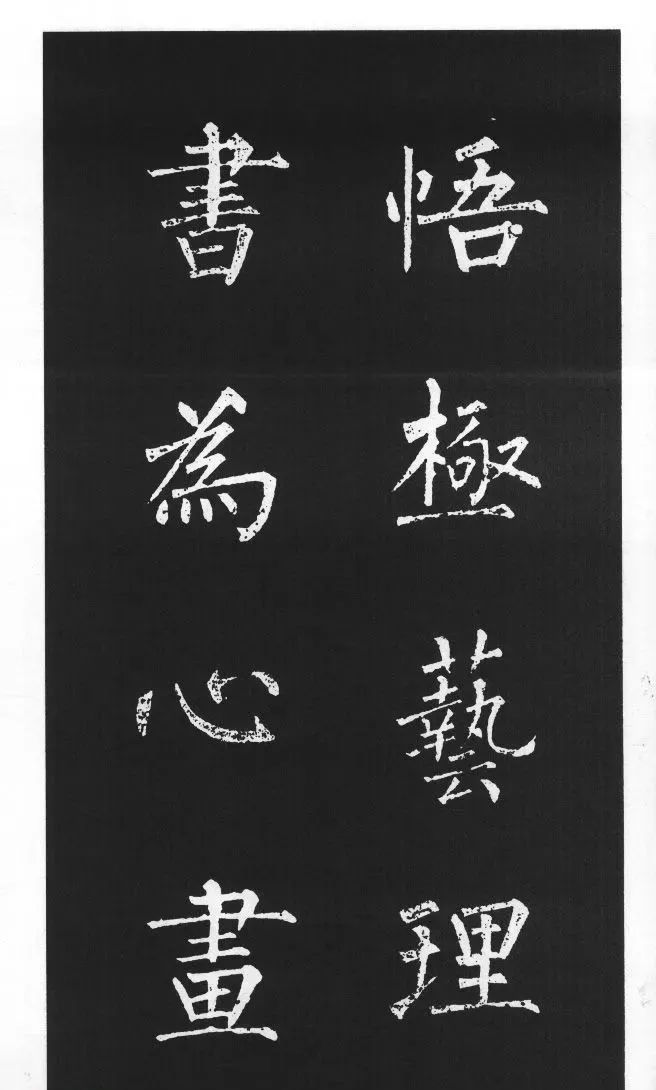 悟極藝理
書為心畫